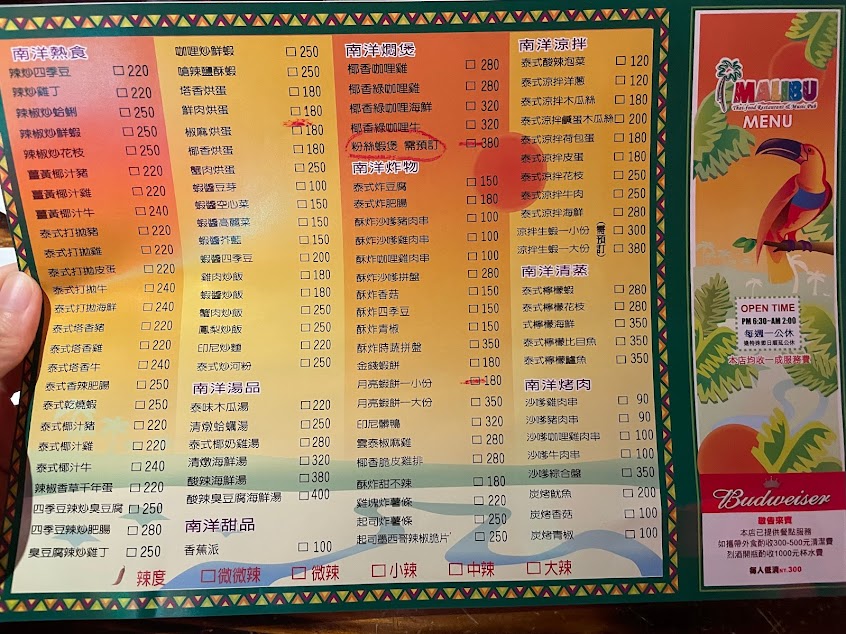 南洋熱食
辣炒四季豆 □ 220
辣炒雞丁 □ 220
辣椒炒蛤蜊 □ 250
辣椒炒鮮蝦 □ 250
辣椒炒花枝 □ 250
薑黃椰汁豬 □ 220
薑黃椰汁雞 □ 220
薑黃椰汁牛 □ 240
泰式打拋豬 □ 220
泰式打拋雞 □ 220
泰式打拋皮蛋 □ 220
泰式打拋牛 □ 240
泰式打拋海鮮 □ 240
泰式塔香豬 □ 220
泰式塔香雞 □ 220
泰式塔香牛 □ 240
泰式香辣肥腸 □ 250
泰式乾燒蝦 □ 250
泰式椰汁豬 □ 220
泰式椰汁雞 □ 220
泰式椰汁牛 □ 240
辣椒香草千年蛋 □ 220
四季豆辣炒臭豆腐 □ 250
四季豆辣炒肥腸 □ 280
臭豆腐辣炒雞丁 □ 250
咖哩炒鮮蝦 □ 250
嗆辣鹽酥蝦 □ 250
塔香烘蛋 □ 180
鮮肉烘蛋 □ 180
椒麻烘蛋 □ 180
椰香烘蛋 □ 180
蟹肉烘蛋 □ 250
蝦醬豆芽 □ 100
蝦醬空心菜 □ 150
蝦醬高麗菜 □ 150
蝦醬芥藍 □ 150
蝦醬四季豆 □ 200
雞肉炒飯 □ 180
蝦醬炒飯 □ 180
蟹肉炒飯 □ 250
鳳梨炒飯 □ 250
印尼炒麵 □ 220
泰式炒河粉 □ 250
南洋湯品
泰味木瓜湯 □ 220
清燉蛤蠣湯 □ 250
泰式椰奶雞湯 □ 280
清燉海鮮湯 □ 320
酸辣海鮮湯 □ 380
酸辣臭豆腐海鮮湯 □ 400
南洋甜品
香蕉派 □ 100
南洋燜煲
椰香咖哩雞 □ 280
椰香綠咖哩雞 □ 280
椰香綠咖哩海鮮 □ 320
椰香綠咖哩牛 □ 320
粉絲蝦煲 需預訂 □ 380
南洋炸物
泰式炸豆腐 □ 150
泰式炸肥腸 □ 180
酥炸沙嗲豬肉串 □ 100
酥炸沙嗲雞肉串 □ 100
酥炸咖哩雞肉串 □ 100
酥炸沙嗲拼盤 □ 280
酥炸香菇 □ 150
酥炸四季豆 □ 150
酥炸青椒 □ 150
酥炸時蔬拼盤 □ 350
金錢蝦餅 □ 180
月亮蝦餅一小份 □ 180
月亮蝦餅一大份 □ 350
印尼髒鴨 □ 320
雲泰椒麻雞 □ 280
椰香脆皮雞排 □ 280
酥炸甜不辣 □ 180
雞塊炸薯條 □ 220
起司炸薯條 □ 250
起司墨西哥辣椒脆片 □ 250
南洋涼拌
泰式酸辣泡菜 □ 120
泰式涼拌洋蔥 □ 120
泰式涼拌木瓜絲 □ 180
泰式涼拌鹹蛋木瓜絲 □ 200
泰式涼拌荷包蛋 □ 180
泰式涼拌皮蛋 □ 180
泰式涼拌花枝 □ 250
泰式涼拌牛肉 □ 250
泰式涼拌海鮮 □ 280
涼拌生蝦一小份 (需預訂) □ 300
涼拌生蝦一大份 □ 380
南洋清蒸
泰式檸檬蝦 □ 280
泰式檸檬花枝 □ 280
式檸檬海鮮 □ 350
泰式檸檬比目魚 □ 350
泰式檸檬鱸魚 □ 350
南洋烤肉
沙嗲雞肉串 □ 90
沙嗲豬肉串 □ 90
沙嗲咖哩雞肉串 □ 100
沙嗲牛肉串 □ 100
沙嗲綜合盤 □ 350
炭烤魷魚 □ 200
炭烤香菇 □ 100
炭烤青椒 □ 100
辣度 □微微辣 □微辣 □小辣 □中辣 □大辣
MALIBU
Thai food Restaurant & Music Pub
MENU
OPEN TIME
PM 6:30-AM 2:00
每週一公休
本店均收一成服務費
Budweiser
敬告來賓
本店已提供餐點服務
如攜帶外食酌收300-500元清潔費
烈酒開瓶酌收1000元杯水費
每人低消NT.300